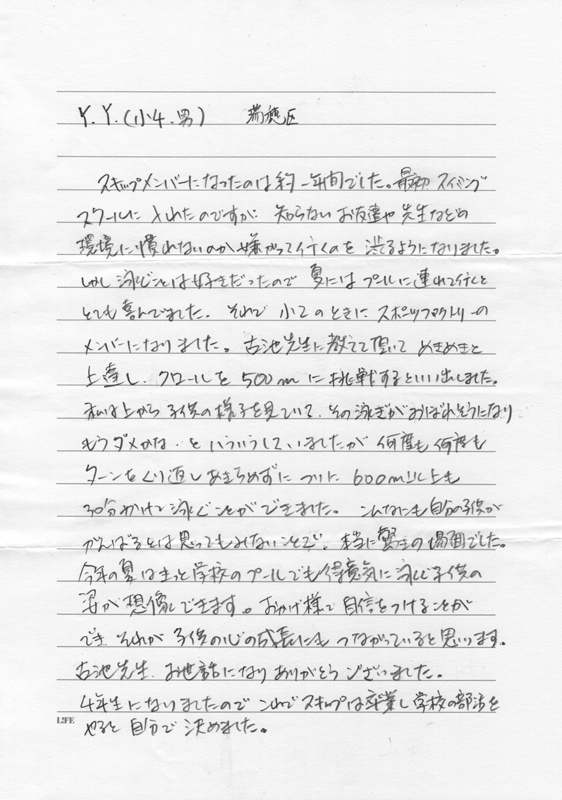 Y.Y.(小4.男) 瑞穂区
スキップメンバーになったのは約一年間でした。最初スイミング
スクールに入れたのですが 知らないお友達や先生などの
環境に慣れないのか嫌がって行くのを渋るようになりました。
しかし泳ぐことは好きだったので夏にはプールに連れて行くと
とても喜んでました。それで小2のときにスポーツファクトリーの
メンバーになりました。古池先生に教えて頂いてめきめきと
上達し、クロールを500mに挑戦するといい出しました。
私は上から子供の様子を見ていて、その泳ぎがおぼれそうになり
もうダメかな、といういうしていましたが 何度も何度も
ターンをくり返しあきらめずに ついに 600m以上も
30分かけて泳ぐことができました。こんなにも自分の子供が
がんばるとは思ってもみないことで、本当に驚きの場面でした。
今年の夏はきっと学校のプールでも得意気に泳ぐ子供の
姿が想像できます。おかげ様で自信をつけることが
でき それが子供の心の成長にもつながっていると思います。
古池先生、お世話になりありがとうございました。
4年生になりましたので これでスキップは卒業し学校の部活を
やると自分で決めました。
LIFE